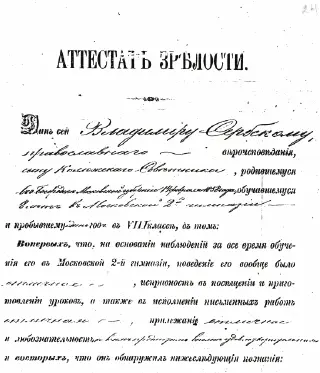 АТТЕСТАТЪ ЗРѢЛОСТИ.
Данъ сей Владиміру Сербскому,
православнаго вѣроисповѣданія,
сыну Коллежскаго Совѣтника, родившемуся
обучавшемуся
въ Московской 2й гимназіи
и пробывшему одинъ годъ въ VIII классѣ, въ томъ:
Вопервыхъ, что, на основаніи наблюденій за все время обуче-
нія его въ Московской 2-й гимназіи, поведеніе его вообще было
отличное, исправность въ посѣщеніи и приго-
товленіи уроковъ, а также въ исполненіи письменныхъ работъ
отличная, прилежаніе отличное
и любознательность
и вовторыхъ, что онъ обнаружилъ нижеслѣдующія познанія: